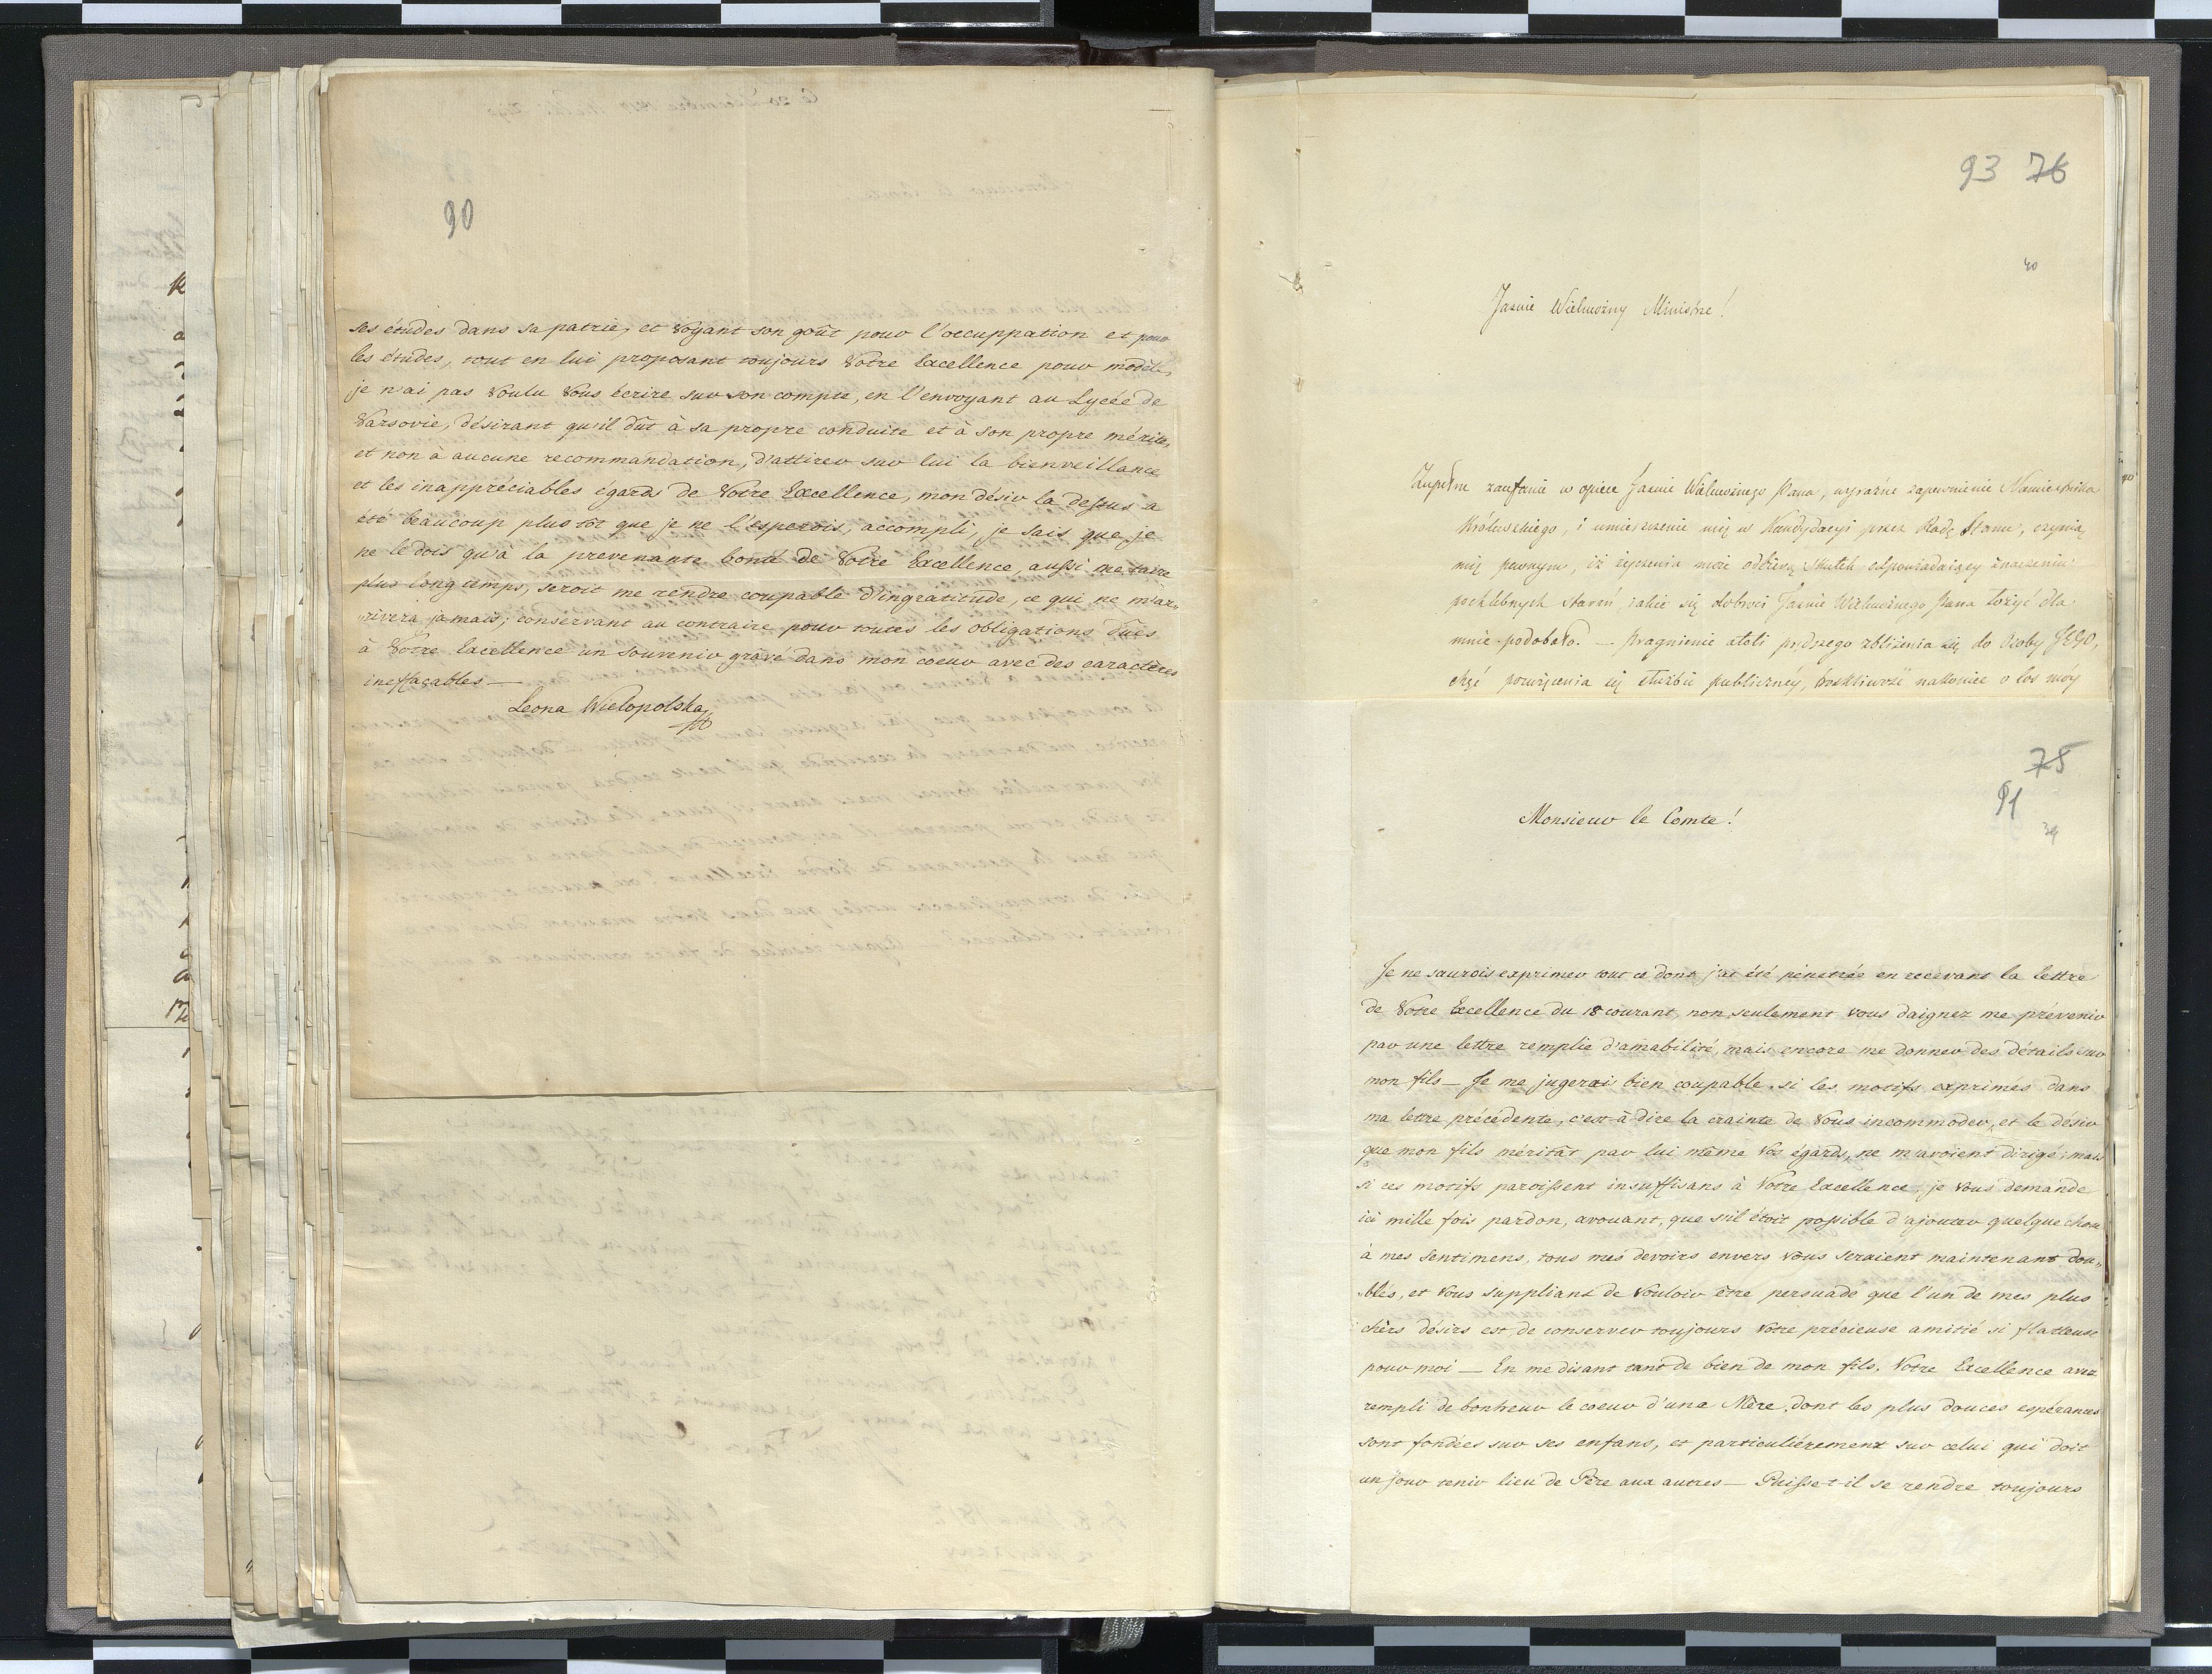 90
ses études dans sa patrie, et voyant son goût pour l'occuppation et pour
les études, tout en lui proposant toujours Votre Excellence pour modèle,
je n'ai pas voulu vous écrire sur son compte, en l'envoyant au Lycée de
Varsovie, désirant qu'il dût à sa propre conduite et à son propre mérite,
et non à aucune recommandation, d'attirer sur lui la bienveillance
et les inappréciables égards de Votre Excellence, mon désir la dessus a
été beaucoup plus tôt que je ne l'esperois, accompli, je sais que je
ne le dois qu'à la prevenante bonté de Votre Excellence, aussi me taire
plus long temps, seroit me rendre coupable d'ingratitude, ce qui ne m'ar-
rivera jamais; conservant au contraire pour toutes les obligations dües
à Votre Excellence un souvenir gravé dans mon coeur avec des caractères
ineffaçables —
Leona Wielopolska
93 76
40
Jaśnie Wielmożny Ministrze!
Zupełne zaufanie w opiece Jaśnie Wielmożnego Pana, wyraźne zapewnienie Namiestnika
Królewskiego, i umieszczenie mię w Kandydacyi przez Radę Stanu, czynią
mię pewnym, iż życzenia moie odbiorą skutek odpowiadaiący znaczeniu
pochlebnych starań, iakie się dobroci Jaśnie Wielmożnego Pana łożyć dla
mnie podobało. — Pragnienie atoli prędszego zbliżenia się do Osoby JEGO,
chęć poświęcenia się służbie publiczney, troskliwość nakoniec o los móy
75
91
39
Monsieur le Comte!
Je ne saurois exprimer tout ce dont j'ai été pénétrée en recevant la lettre
de Votre Excellence du 18 courant, non seulement vous daignez me prévenir
par une lettre remplie d'amabilité, mais encore me donner des détails sur
mon fils — Je me jugerais bien coupable, si les motifs exprimés dans
ma lettre précédente, c'est-à-dire la crainte de Vous incommoder, et le désir
que mon fils méritât par lui même vos égards, ne m'avoient dirigé; mais
si ces motifs paroissent insuffisans à Votre Excellence, je vous demande
ici mille fois pardon, avouant, que s'il étoit possible d'ajouter quelque chose
à mes sentimens, tous mes devoirs envers vous seraient maintenant dou-
blés, et Vous suppliant de vouloir être persuadé que l'un de mes plus
chers désirs est de conserver toujours Votre précieuse amitié si flatteuse
pour moi — En me disant tant de bien de mon fils, Votre Excellence avez
rempli de bonheur le coeur d'une Mère, dont les plus douces espérances
sont fondées sur ses enfans, et particulièrement sur celui qui doit
un jour tenir lieu de Père aux autres — Puisse-t-il se rendre toujours